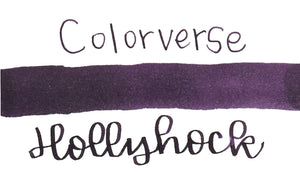 Colorverse
Hollyhock